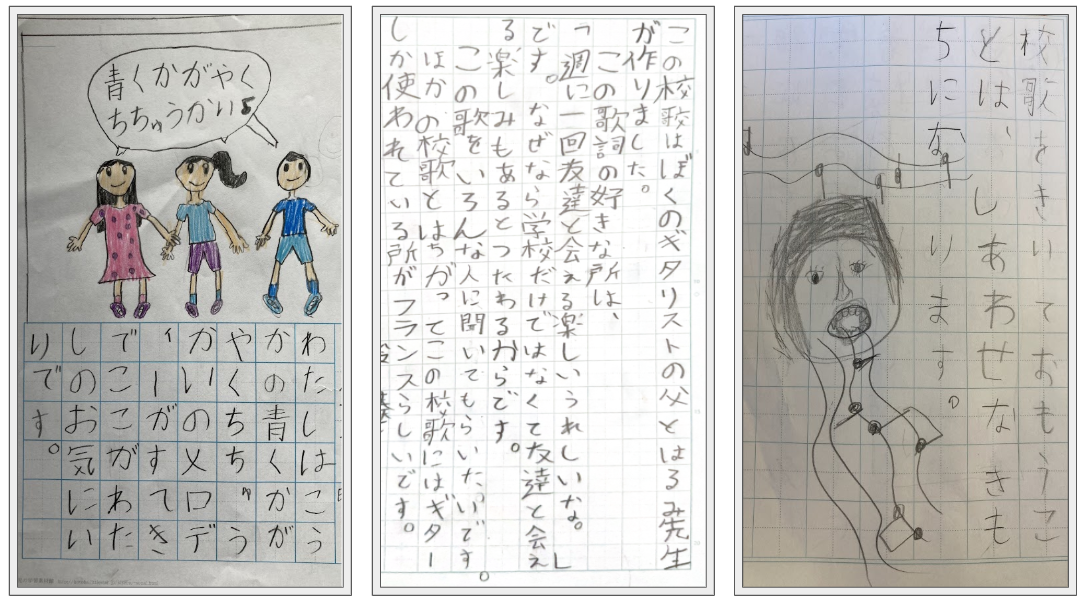 青くかがやく
ちちゅうかい♪
わたしはこう
かの青くかが
やくちちゅう
かいのメロデ
ィーがすてき
でここがわた
しのお気にい
りです。
この校歌はぼくのギタリストの父とはるみ先生
が作りました。
この歌詞の好きな所は、
「週に一回友達と会える楽しいうれしいな。」
です。なぜなら学校だけではなくて友達と会え
る楽しみもあるとつたわるからです。
この歌をいろんな人に聞いてもらいたいです。
ほかの校歌とはちがってこの校歌にはギター
しか使われている所がフランスらしいです。
校歌をきいておもうこ
とは、しあわせなきも
ちになります。